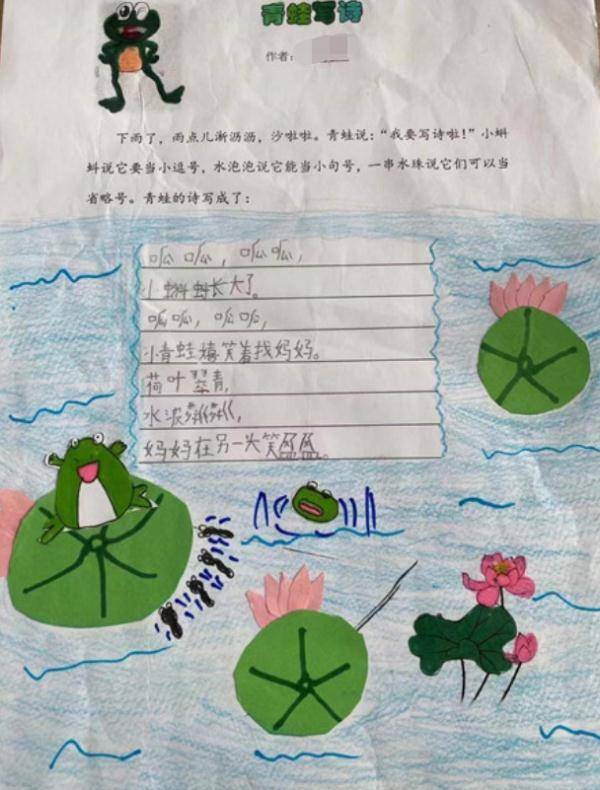 青蛙写诗
作者：
下雨了，雨点儿淅沥沥，沙啦啦。青蛙说：“我要写诗啦！”小蝌
蚪说它要当小逗号，水泡泡说它能当小句号，一串水珠说它们可以当
省略号。青蛙的诗写成了：
呱呱，呱呱，
小蝌蚪长大了。
呱呱，呱呱，
小青蛙嬉笑着找妈妈。
荷叶翠青，
水波粼粼，
妈妈在另一头笑盈盈。